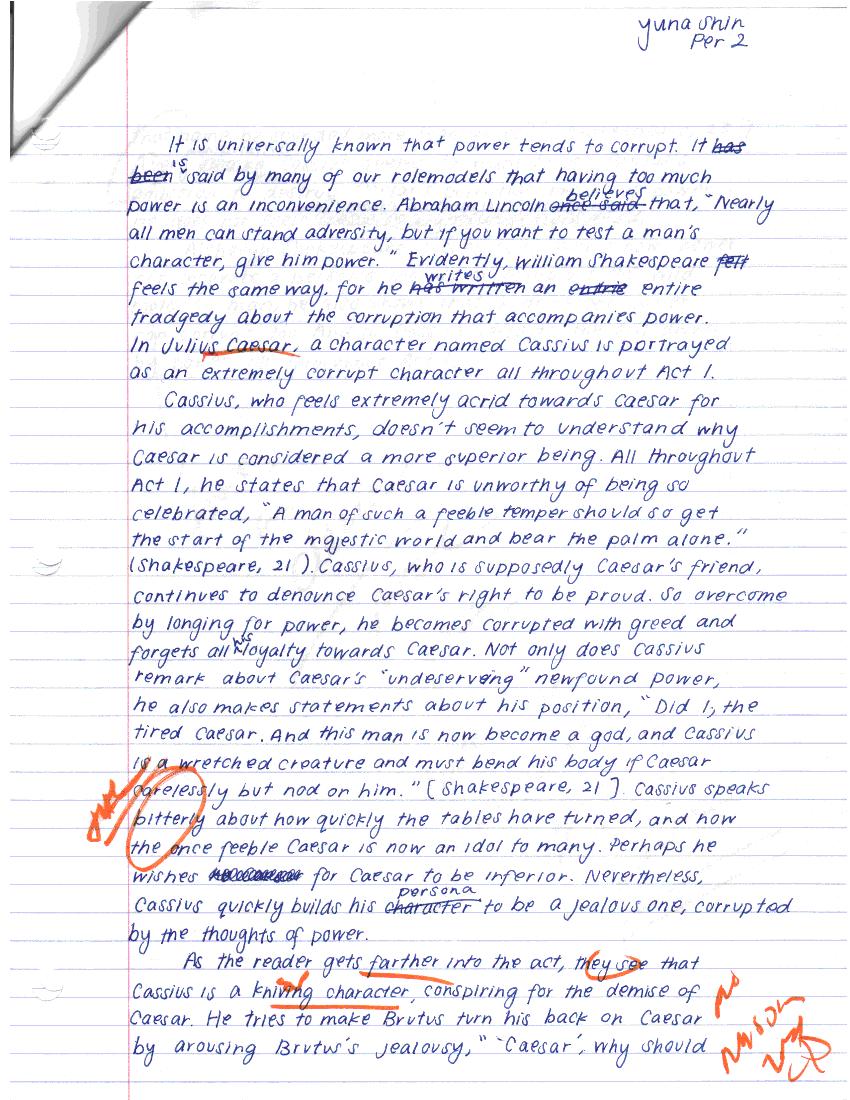 yuna shin
Per 2
It is universally known that power tends to corrupt. It has
been is said by many of our rolemodels that having too much
power is an inconvenience. Abraham Lincoln once said believes that, "Nearly
all men can stand adversity, but if you want to test a man's
character, give him power." Evidently, William Shakespeare felt
feels the same way. for he has written writes an entrie entire
tradgedy about the corruption that accompanies power.
In Julius Caesar, a character named Cassius is portrayed
as an extremely corrupt character all throughout Act 1.
Cassius, who feels extremely acrid towards Caesar for
his accomplishments, doesn't seem to understand why
Caesar is considered a more superior being. All throughout
Act 1, he states that Caesar is unworthy of being so
celebrated, "A man of such a feeble temper should so get
the start of the majestic world and bear the palm alone."
(Shakespeare, 21). Cassius, who is supposedly Caesar's friend,
continues to denounce Caesar's right to be proud. So overcome
by longing for power, he becomes corrupted with greed and
forgets all his loyalty towards Caesar. Not only does Cassius
remark about Caesar's "undeserving" newfound power,
he also makes statements about his position, "Did I, the
tired Caesar. And this man is now become a god, and Cassius
is a wretched creature and must bend his body if Caesar
carelessly but nod on him." [Shakespeare, 21]. Cassius speaks
bitterly about how quickly the tables have turned, and now
the once feeble Caesar is now an idol to many. Perhaps he
wishes for Caesar to be inferior. Nevertheless,
Cassius quickly builds his character persona to be a jealous one, corrupted
by the thoughts of power.
As the reader gets farther into the act, they see that
Cassius is a kniving character, conspiring for the demise of
Caesar. He tries to make Brutus turn his back on Caesar
by arousing Brutus's jealousy, " 'Caesar', why should